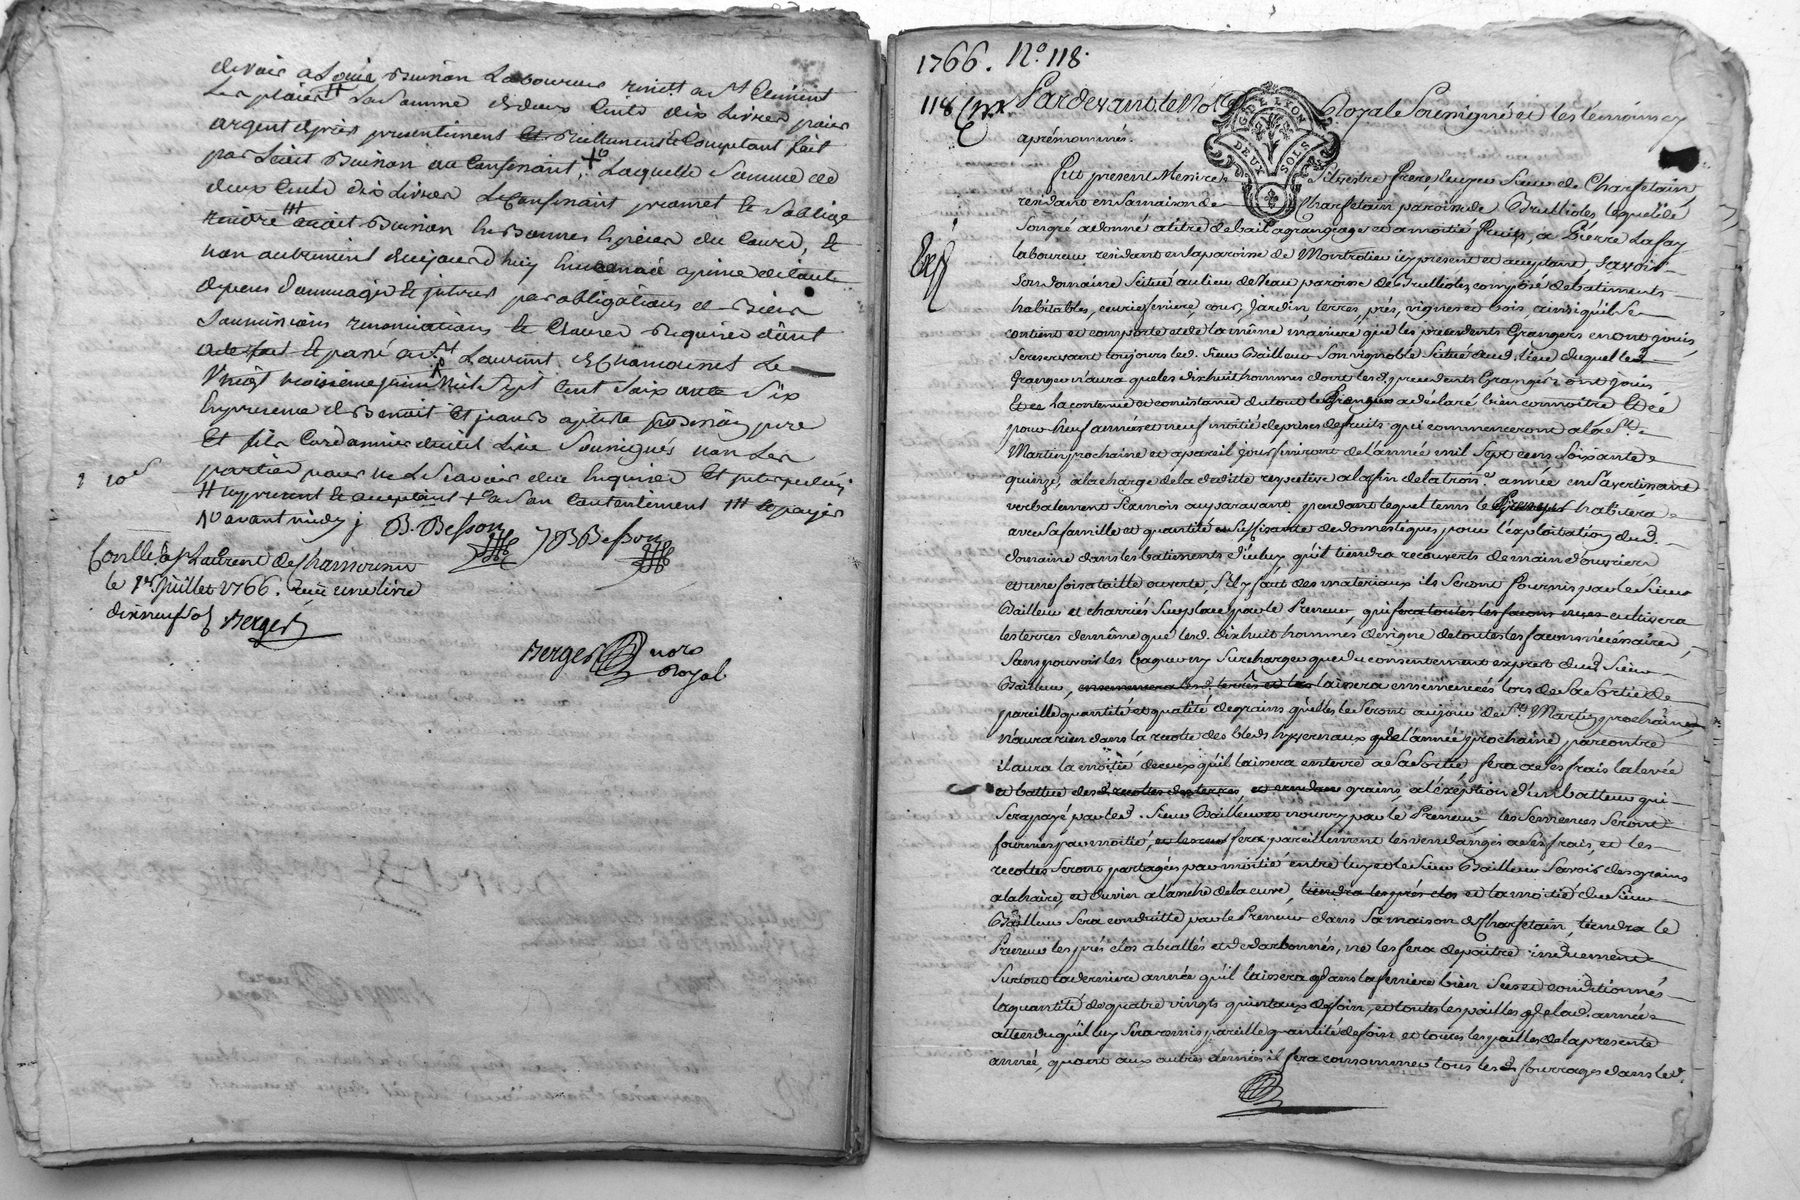 devoir a Louis Buinon Laboureur
La somme de deux Cents dix Livres
argent
par Ledit Buinon au Confinant, Laquelle Somme de
deux Cents dix Livres Le Confinant promet et s'oblige
rendre audit Buinon
non autrement
depens dommages et interets par obligations de Biens
Soumissions renonciations et Clauses Requises dûnt
acte fait et passé a St Laurent de Chamousset Le
Vingt troisieme juin Mil Sept Cent Soixante Six
En presence de Benoit et jean Baptiste Besson pere
Et fils Cordonniers dudit Lieu Soussignés non Les
parties pour ne Le Scavoir de ce Enquises Et interpellées
1 10 s
present et acceptant + de Son Consentement # et payer
avant midy B. Besson JB Besson
Conllé a St Laurent de Chamousset
le 1er Juillet 1766. Reçu une livre
dix neuf sols Berger
Berger nore
Royal
1766. N.o 118.
118 Pardevant le No.re Royal Soussigné et les témoins cy
GE. DE LYON
DEUX SOLS
aprés nommés.
Fut présent Messire Silvestre frere, Ecuyer Sieur de Charfetain
rendant en sa maison de Charfetain paroisse de Brullioles lequel de
Son gré a donné a titre de bail a grangeage et a moitié fruits, a Pierre Lafay
laboureur residant en la paroisse de Montrotier icy present et acceptant, Savoir
Son domaine Situé au lieu de paroisse de Brullioles composé de batiments
habitables, écurie, feniere, cour, Jardin terres, prés, vignes et bois ainsi qu'il Se
contient et comporte et de la même maniere que les précédents Grangers en ont jouis,
Se reservant toujours led. Sieur Bailleur Son vignoble Situé aud. lieu duquel led.
Granger n'aura que les dixhuit hommes dont les d. precedents Grangers ont jouis
Et ce la contenue et consistance du tout le a déclaré bien connoitre Et ce
pour Neuf années et neuf moitié de prises de fruits qui commenceront a la St.
Martin prochaine et a pareil jour finiront de l'année mil Sept cens Soixante
quinze, a la charge de la deditte respective a la fin de la trois.e année en S'avertissant
verbalement Six mois auparavant, pendant lequel tems le Preneur habitera
avec Sa famille et quantité Suffisante de domestiques, pour l'exploitation dud.
domaine dans les batiments d'iceluy qu'il tiendra recouverts de main d'ouvrier
et une fois a taille ouverte, S'il y faut des materiaux ils Seront fournis par le Sieur
Bailleur et charriés Sur place par le Preneur, qui fera toutes les façons cultivera
les terres de même que les d. dixhuit hommes de vigne de toutes les facons nécéssaires,
Sans pouvoir les Surcharger que du consentement exprest dud. Sieur
Bailleur, ensemencera les d. terres et les laissera ensemencés lors de Sa Sortie de
pareille quantité et qualité de grains qu'elles le Seront au jour de St. Martin prochaine,
n'aura rien dans la recolte des bleds hyvernaux de l'année prochaine par contre
il aura la moitié de ceux qu'il laissera en terre a Sa Sortie fera a Ses frais la levée
et battue des d. recoltes des terres, grains, a l'éxéption d'un batteur qui
Sera payé par led. Sieur Bailleur et nourry par le Preneur les Semences Seront
fournies par moitié, fera pareillement les vendanges a Ses frais, et les
recoltes Seront partagés par moitié entre luy et le Sieur Bailleur Savoir des grains
a l'haire, et du vin a l'anche de la cuve, tiendra les prés clos et la moitié du Sieur
Bailleur Sera conduitte par le Preneur dans Sa maison de Charfetain, tiendra le
Preneur les prés clos abeallés et dedarbonnés, ne les fera depaitre induement
Surtout la derniere année qu'il laissera dans la feniere bien Secs et conditionnés
la quantité de quatre vingts quintaux de foin, et toutes les pailles de lad. année
attendu qu'il luy Sera remis pareille quantité de foin et toutes les pailles de la presente
année, quant aux autres années il fera consommer tous les d. fourrages dans led.